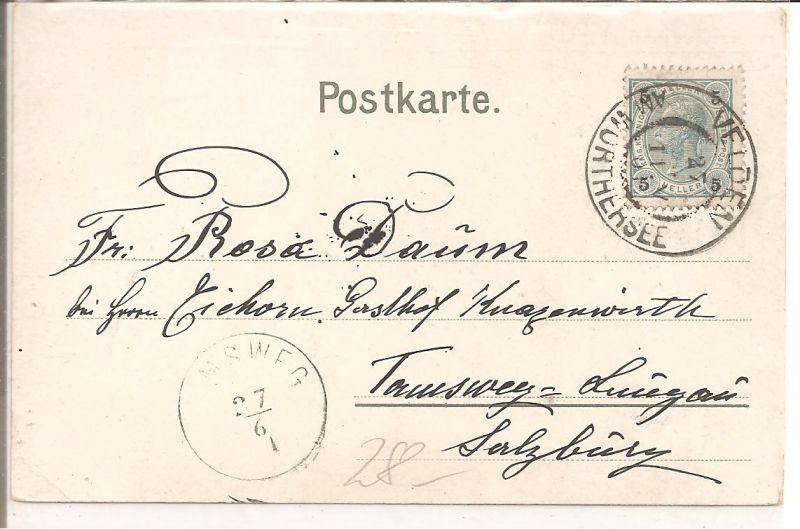 Postkarte.
VELDEN AM WÖRTHERSEE
5 HELLER 5
Fr. Rosa Daum
bei Herrn Eichorn, Gasthof Knappenwirth
Tamsweg = Lungau
Salzburg
MSWEG
27
6
1
28-